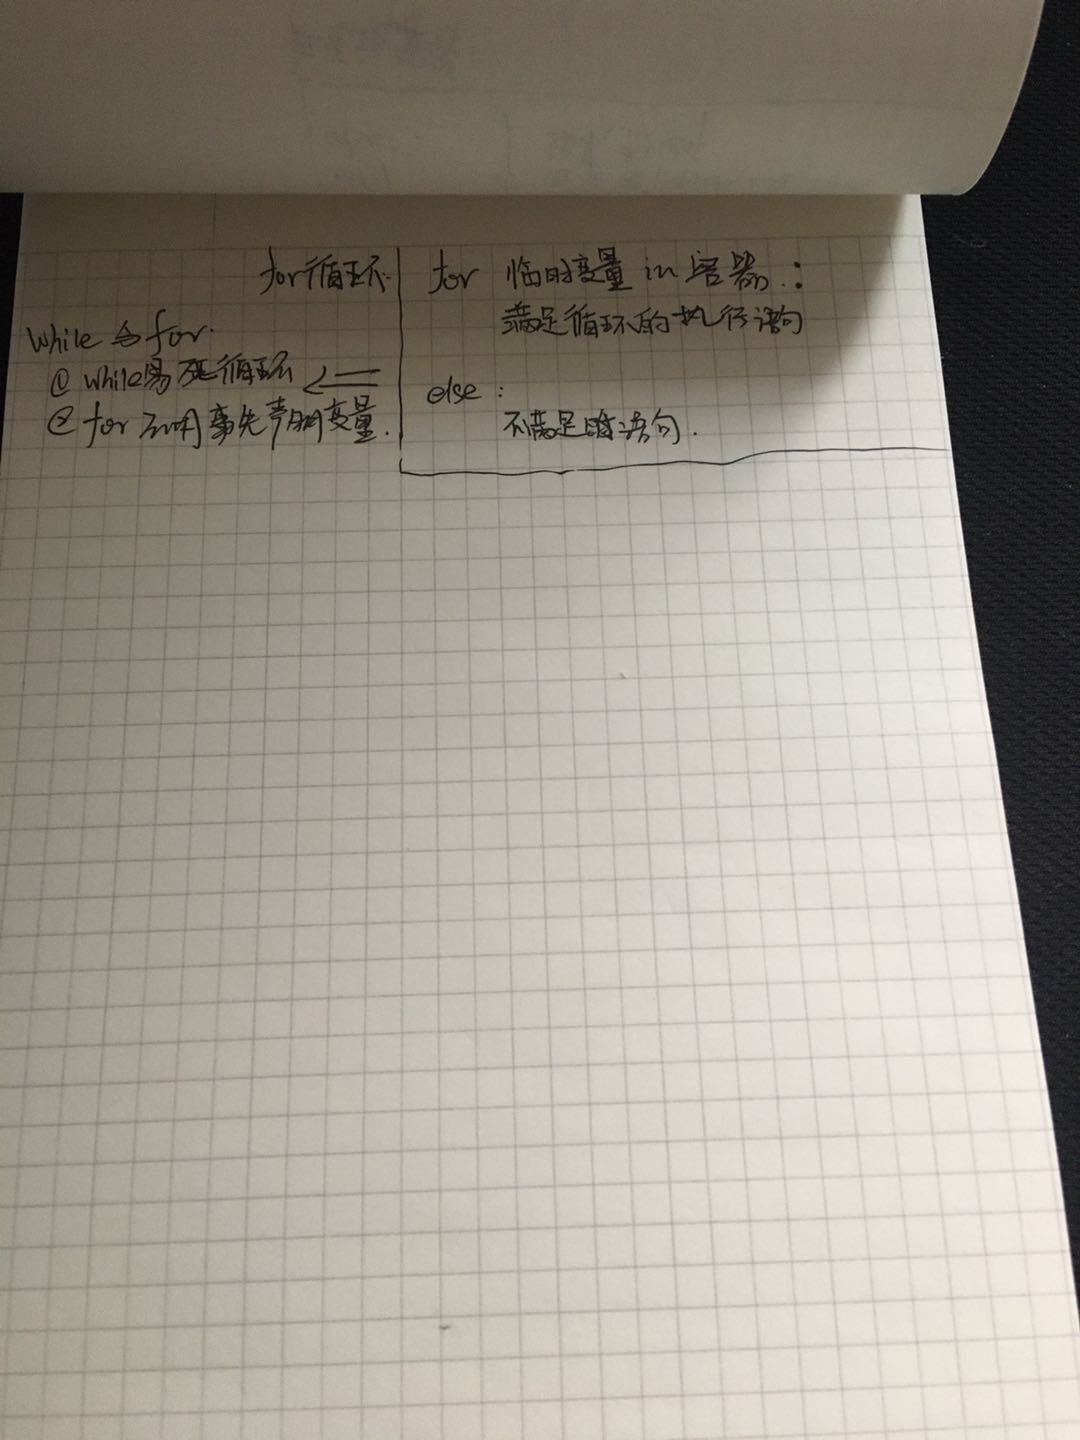 for循环
for 临时变量 in 容器:
满足循环的执行语句
else:
不满足时语句.
while与for.
① while易死循环
② for 不用事先声明变量.